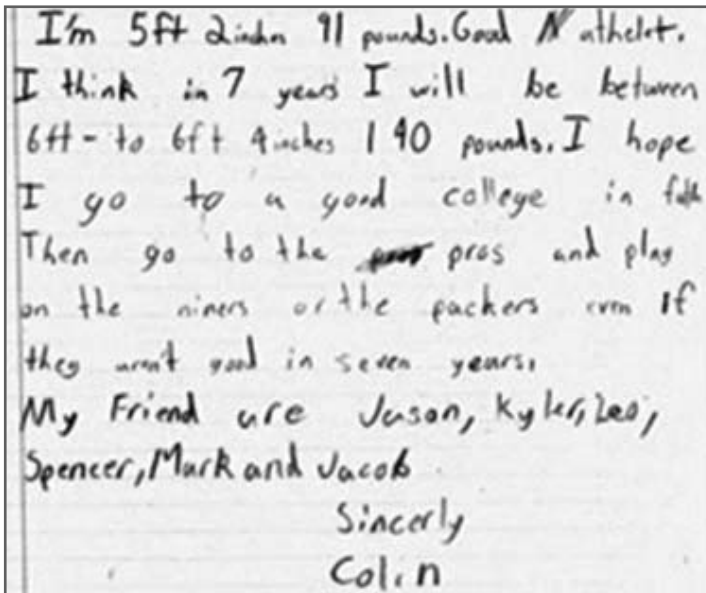 I'm 5ft 2inches 91 pounds. Good athelet.
I think in 7 years I will be between
6ft - to 6ft 4inches 190 pounds. I hope
I go to a good college in
Then go to the pros and play
on the niners or the packers even if
they aren't good in seven years.
My Friend are Jason, Kyler, Leo,
Spencer, Mark and Jacob
Sincerly
Colin